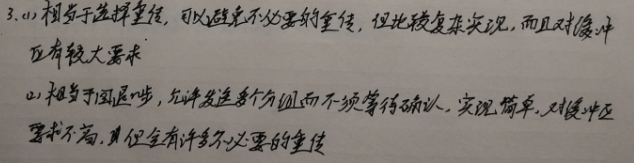 3.(1) 相当于选择重传，可以避免不必要的重传，但比较复杂实现，而且对缓冲
区有较大要求
(2) 相当于回退n步，允许发送多个分组而不须等待确认，实现简单，对缓冲区
要求不高，但会有许多不必要的重传